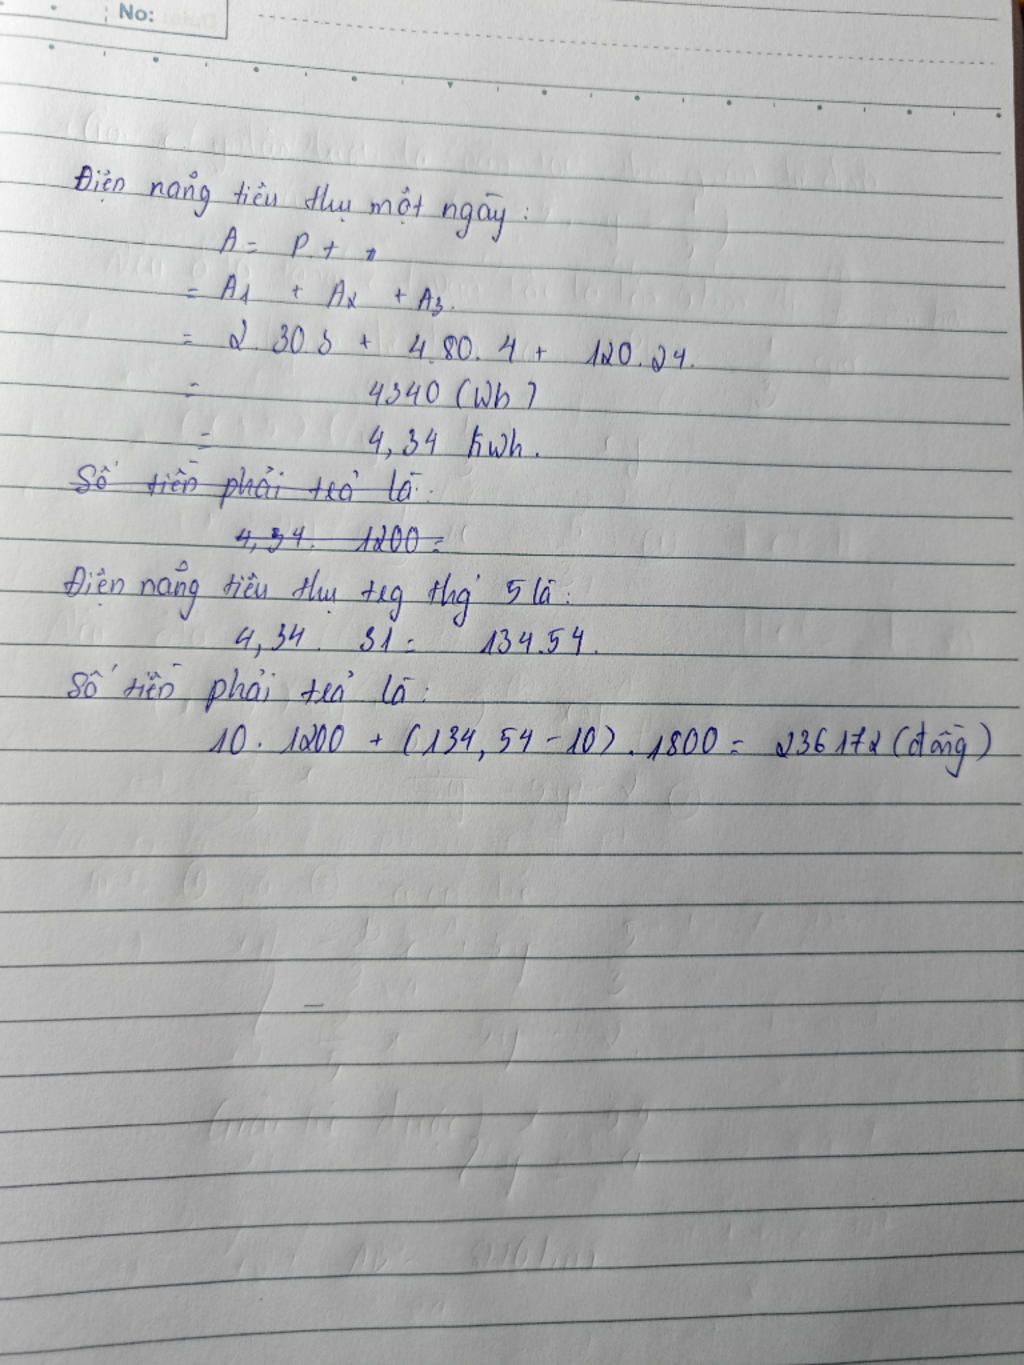 No:
Điện nẳng tiêu thụ một ngày:
A = P. t
= A1 + A2 + A3.
= 2. 30 3 + 4.80. 4 + 120. 24.
= 4340 (Wh)
= 4,34 kWh.
Số tiền phải trả là:
4,34. 1200 =
Điện nẳng tiêu thụ trg thg 5 là:
4,34. 31 = 134.54.
Số tiền phải trả là:
10. 1200 + (134,54 - 10). 1800 = 236172 (đồng)